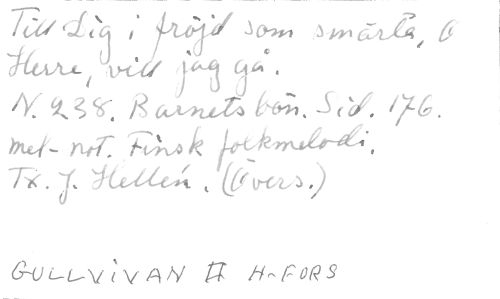 Till Dig i fröjd som smärta, O
Herre, vill jag gå.
N. 238. Barnets bön. Sid. 176.
mel-not. Finsk folkmelodi.
Tx. J. Hellén. (Övers.)
GULLVIVAN II H-FORS